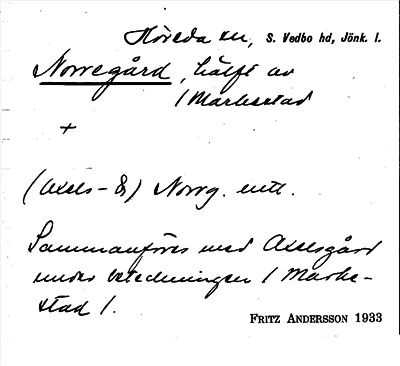 Höreda sn, S. Vedbo hd, Jönk. l.
Norregård, hälft av
1 Markestad
+
(Axels- &) Norrg. mtl.
Sammanföres med Axelsgård
under beteckningen 1 Marke-
stad 1.
FRITZ ANDERSSON 1933